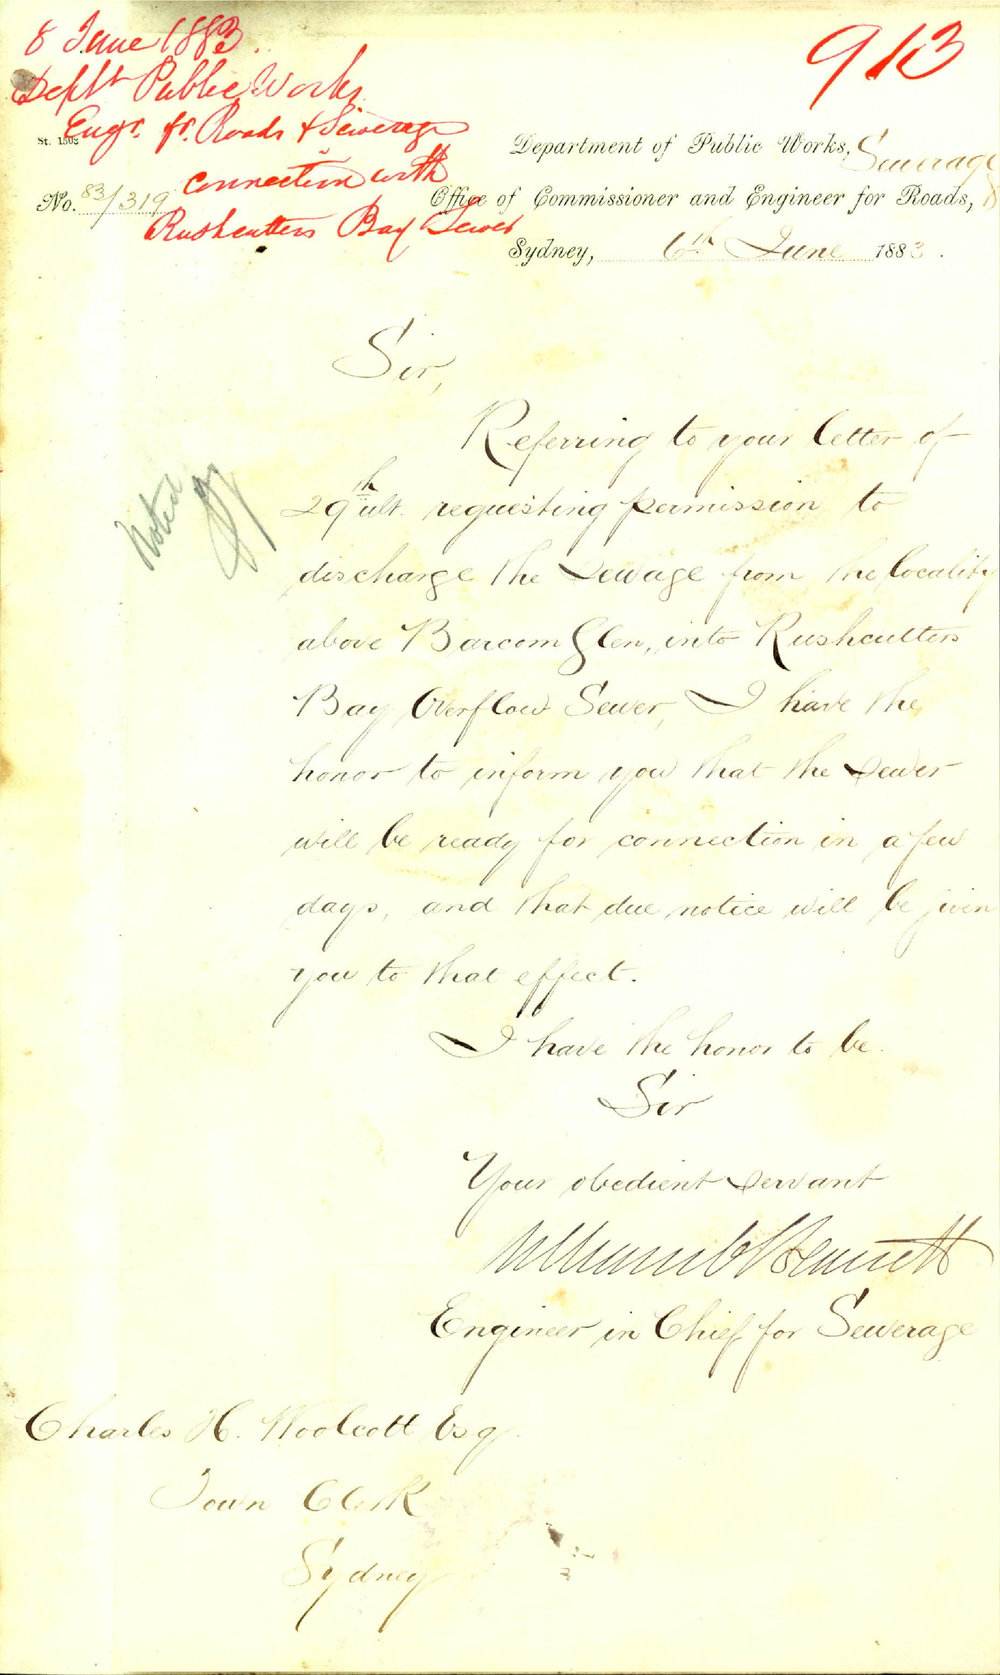 8 June 1883.
913
Deptt Public Works
Engr. fr. Roads & Sewerage
connection with
Rushcutters Bay Sewer
St. 1503
No. 83/319
Department of Public Works, Sewerage
Office of Commissioner and Engineer for Roads, &
Sydney, 6th June 1883.
Sir,
Referring to your letter of
29th ult. requesting permission to
discharge the Sewage from the locality
above Barcom Glen, into Rushcutters
Bay Overflow Sewer, I have the
honor to inform you that the Sewer
will be ready for connection in a few
days, and that due notice will be given
you to that effect.
Noted
I have the honor to be
Sir
Your obedient Servant
William C Bennett
Engineer in Chief for Sewerage
Charles H. Woolcott Esq.
Town Clerk
Sydney